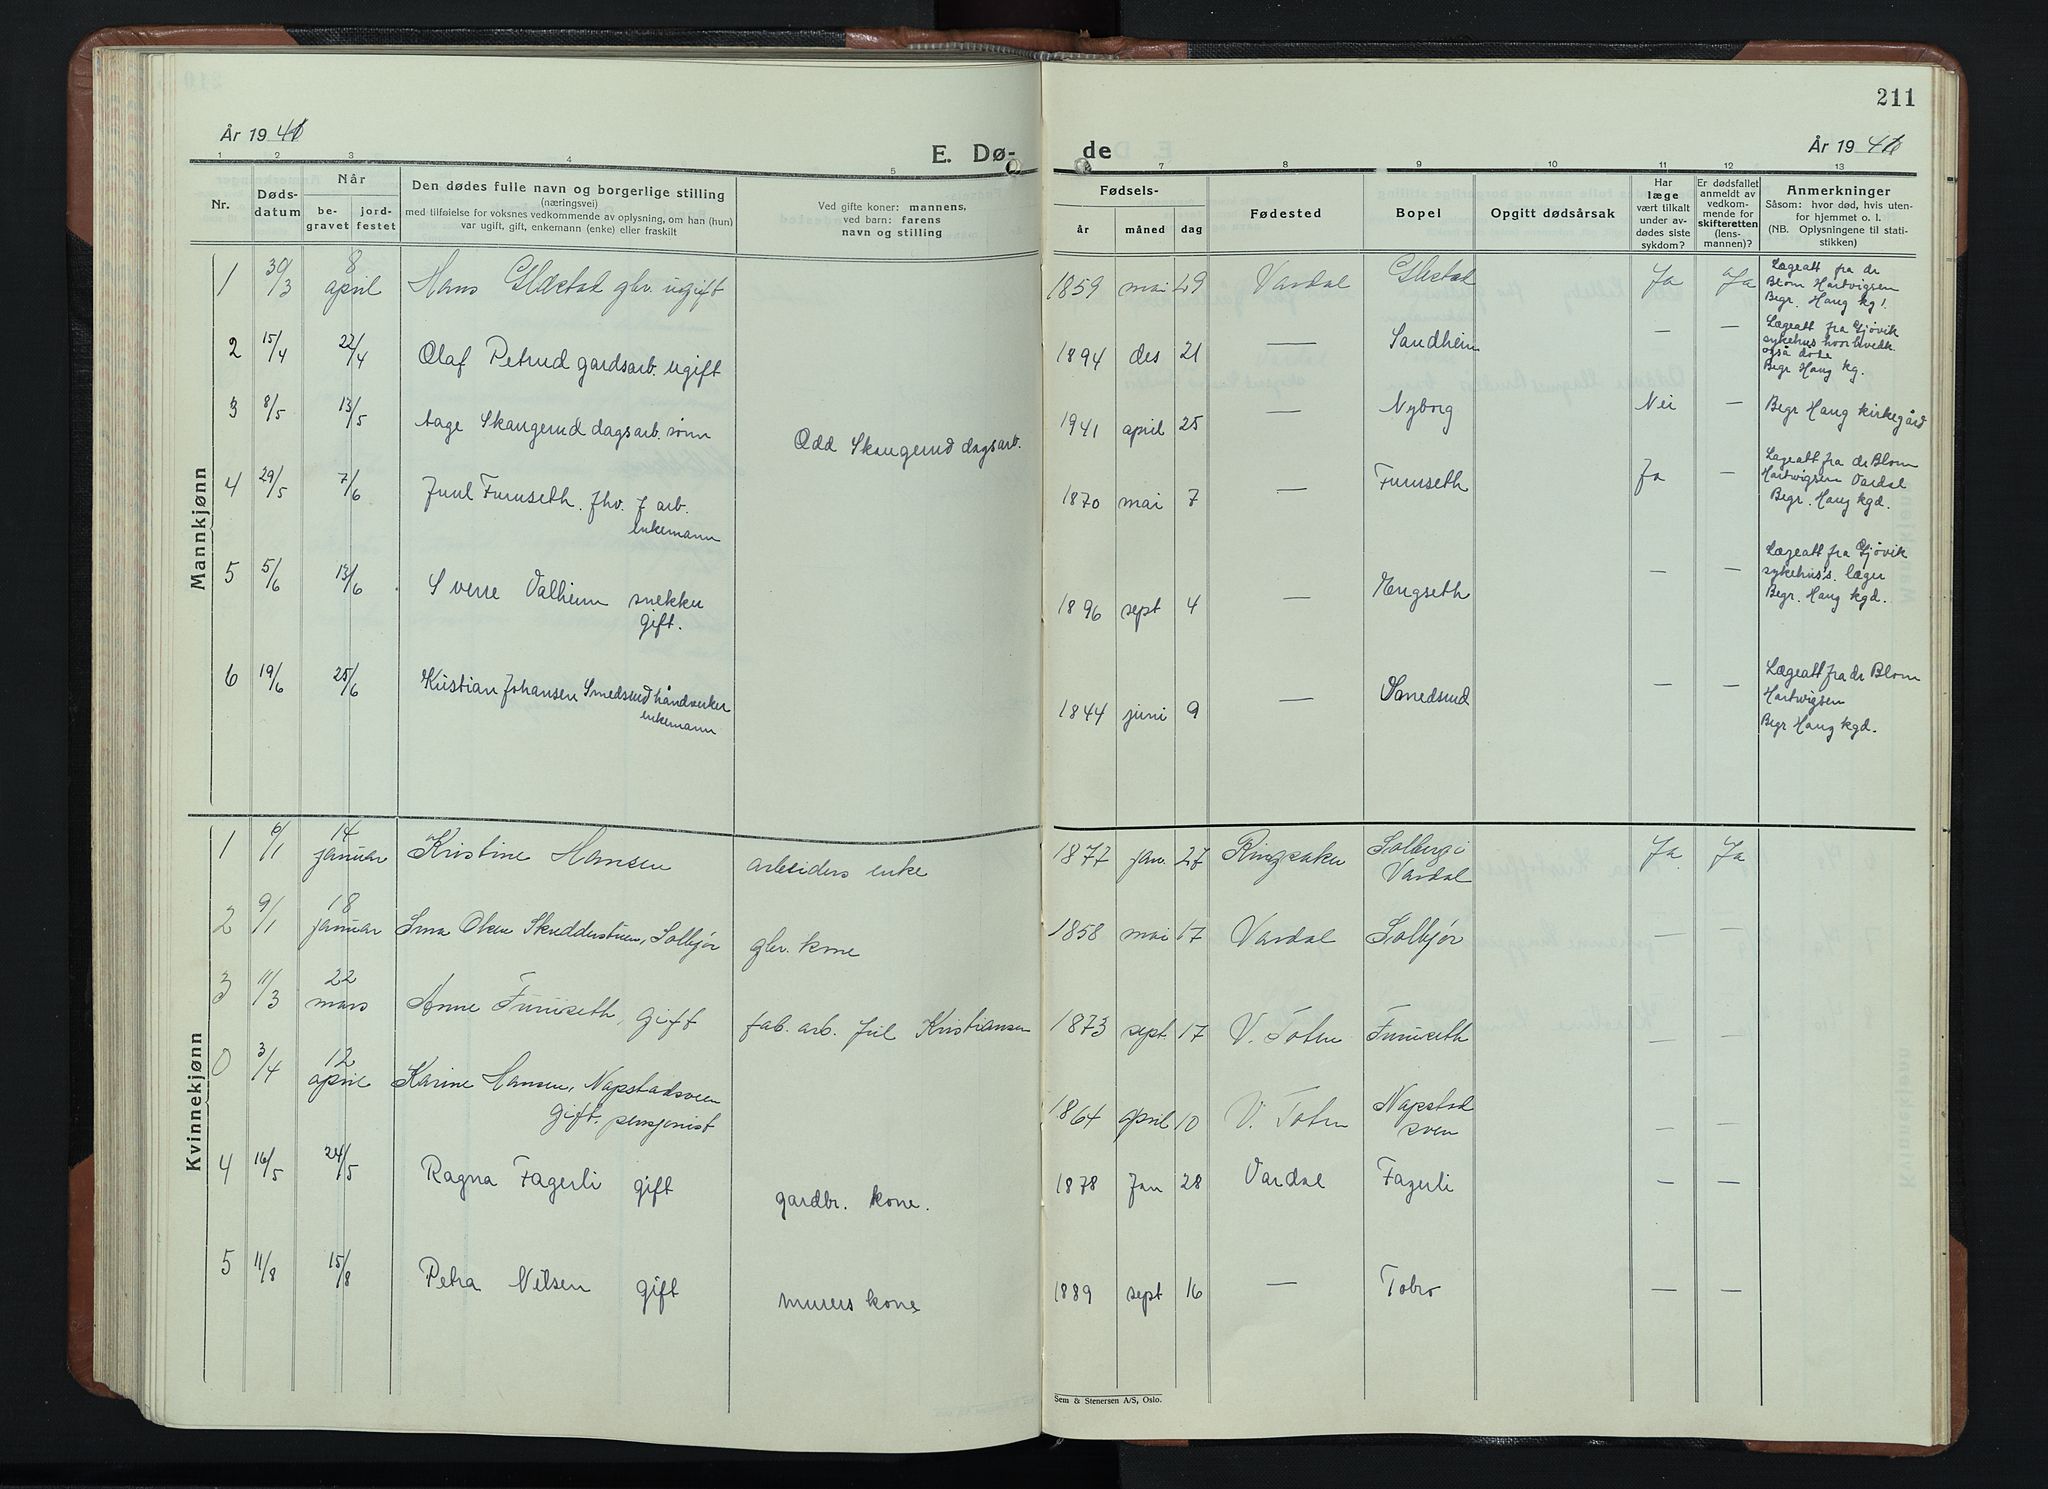 211
År 1941
E. Dø-
de
År 1941
1 2 3 4 5 7 8 9 10 11 12 13
Nr.
Døds-
datum
Når
be-
gravet
jord-
festet
Den dødes fulle navn og borgerlige stilling
(næringsvei)
med tilføielse for voksnes vedkommende av oplysning, om han (hun)
var ugift, gift, enkemann (enke) eller fraskilt
Ved gifte koner: mannens,
ved barn: farens
navn og stilling
Fødsels-
år måned dag
Fødested
Bopel
Opgitt dødsårsak
Har
læge
vært tilkalt
under av-
dødes siste
sykdom?
Er dødsfallet
anmeldt av
vedkom-
mende for
skifteretten
(lens-
mannen)?
Anmerkninger
Såsom: hvor død, hvis uten-
for hjemmet o. l.
(NB. Oplysningene til stati-
stikken)
Mannkjønn
1 30/3 8 april Hans Glæstad gbr. ugift 1859 mai 29 Vardal Glæstad Ja Ja
Lægeatt fra dr
Blom Hartvigsen
Begr. Haug kg!
2 15/4 22/4 Olaf Petrud gardsarb. ugift 1894 des 21 — Sandheim — —
Lægeatt fra Gjøvik
sykehus hvor vedk.
også døde
Begr Haug kg.
3 8/5 13/5 Aage Skaugerud dagsarb. sønn Odd Skaugerud dagsarb. 1941 april 25 — Nyborg Nei — Begr Haug kirkegård
4 29/5 7/6 Juul Furuseth. fhv. f arb.
enkemann
1870 mai 7 — Furuseth Ja —
Lageatt fra dr Blom
Hartvigsen Vardal
Begr. Haug kgd.
5 5/6 13/6 Sverre Valheim snekker
gift.
1896 sept 4 — Engseth — —
Lægeatt fra Gjøvik
sykehus's. læger
Begr. Haug kgd.
6 19/6 25/6 Kristian Johansen Smedsrud håndverker
enkemann
1844 juni 9 — Smedsrud — —
Lægeatt fra dr Blom
Hartvigsen
Begr Haug kgd.
Kvinnekjønn
1 6/1 14 januar Kristine Hansen arbeiders enke 1877 jan. 27 Ringsaker Solberg i
Vardal
Ja Ja
2 9/1 18 januar Olsen Skredderstuen, Solbjør gbr. kone 1858 mai 17 Vardal Solbjør — —
3 11/3 22 mars Anne Furuseth, gift fab. arb. Jul Kristiansen 1873 sept 17 V. Toten Furuseth — —
0 3/4 12 april Karine Hansen, Napstadsveen
gift. pensjonist
1864 april 10 V. Toten Napstad
sveen
— —
4 16/5 24/5 Ragna Fagerli gift gardbr. kone. 1878 Jan 28 Vardal Fagerli — —
5 11/8 15/8 Petra Nilsen gift murers kone 1889 sept 16 — Tobro — —
Sem & Stenersen A/S, Oslo.